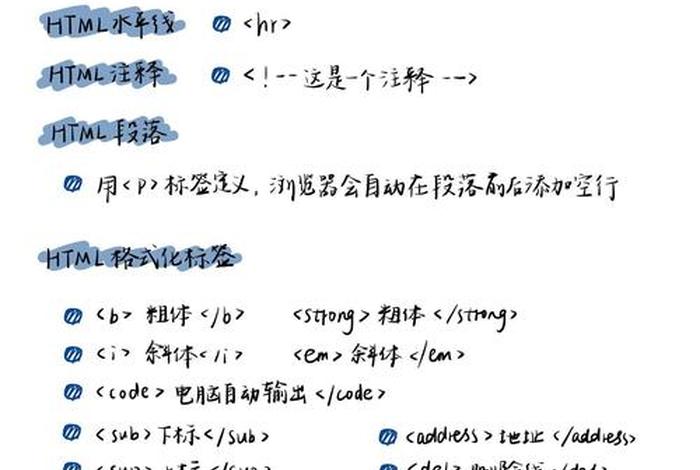 HTML 水平线 <hr>
HTML 注释 <!--这是一个注释-->
HTML 段落
用<p>标签定义,浏览器会自动在段落前后添加空行
HTML 格式化标签
<b> 粗体 </b> <strong> 粗体 </strong>
<i> 斜体</i> <em> 斜体 </em>
<code> 电脑自动输出 </code>
<sub>下标</sub> <address> 地址 </address>